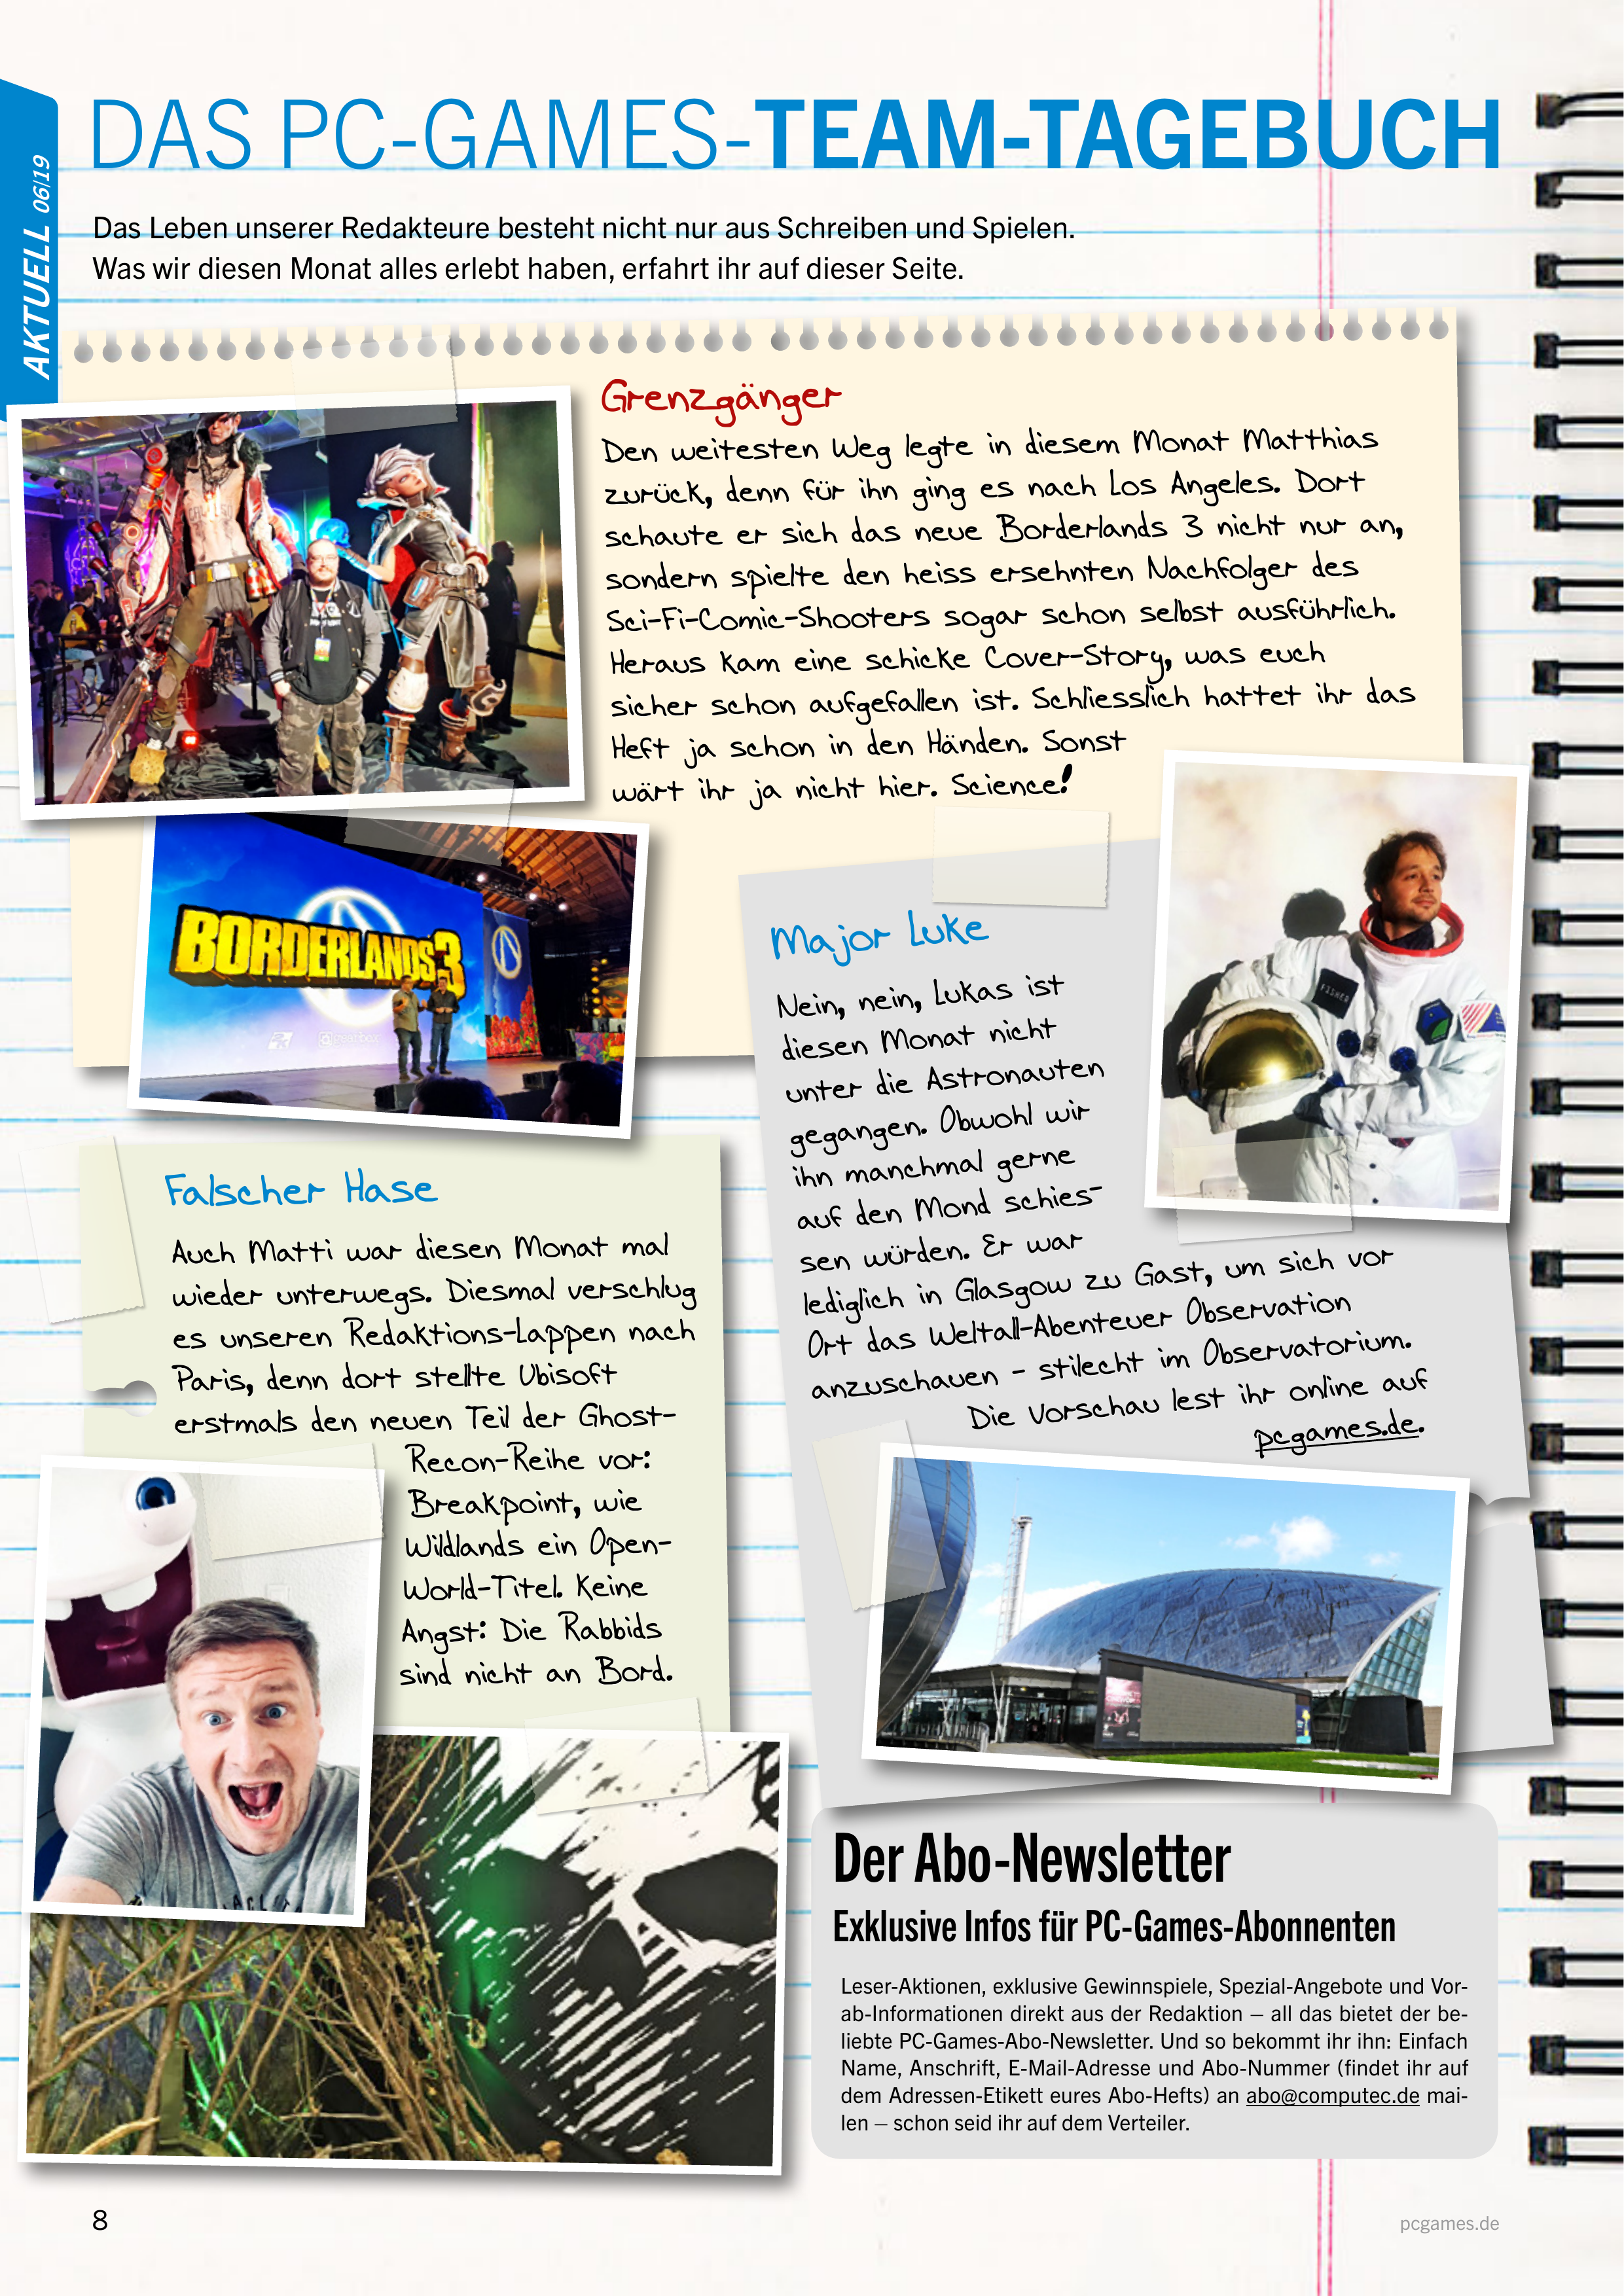 AKTUELL 06|19
DAS PC-GAMES-TEAM-TAGEBUCH
Das Leben unserer Redakteure besteht nicht nur aus Schreiben und Spielen.
Was wir diesen Monat alles erlebt haben, erfahrt ihr auf dieser Seite.
Grenzgänger
Den weitesten Weg legte in diesem Monat Matthias
zurück, denn für ihn ging es nach Los Angeles. Dort
schaute er sich das neue Borderlands 3 nicht nur an,
sondern spielte den heiss ersehnten Nachfolger des
Sci-Fi-Comic-Shooters sogar schon selbst ausführlich.
Heraus kam eine schicke Cover-Story, was euch
sicher schon aufgefallen ist. Schliesslich hattet ihr das
Heft ja schon in den Händen. Sonst
wärt ihr ja nicht hier. Science!
BORDERLANDS 3
2K
gearbox
Major Luke
Nein, nein, Lukas ist
diesen Monat nicht
unter die Astronauten
gegangen. Obwohl wir
ihn manchmal gerne
auf den Mond schies-
sen würden. Er war
lediglich in Glasgow zu Gast, um sich vor
Ort das Weltall-Abenteuer Observation
anzuschauen - stilecht im Observatorium.
Die Vorschau lest ihr online auf
pcgames.de.
FISHER
Falscher Hase
Auch Matti war diesen Monat mal
wieder unterwegs. Diesmal verschlug
es unseren Redaktions-Lappen nach
Paris, denn dort stellte Ubisoft
erstmals den neuen Teil der Ghost-
Recon-Reihe vor:
Breakpoint, wie
Wildlands ein Open-
World-Titel. Keine
Angst: Die Rabbids
sind nicht an Bord.
Der Abo-Newsletter
Exklusive Infos für PC-Games-Abonnenten
Leser-Aktionen, exklusive Gewinnspiele, Spezial-Angebote und Vor-
ab-Informationen direkt aus der Redaktion – all das bietet der be-
liebte PC-Games-Abo-Newsletter. Und so bekommt ihr ihn: Einfach
Name, Anschrift, E-Mail-Adresse und Abo-Nummer (findet ihr auf
dem Adressen-Etikett eures Abo-Hefts) an abo@computec.de mai-
len – schon seid ihr auf dem Verteiler.
8
pcgames.de